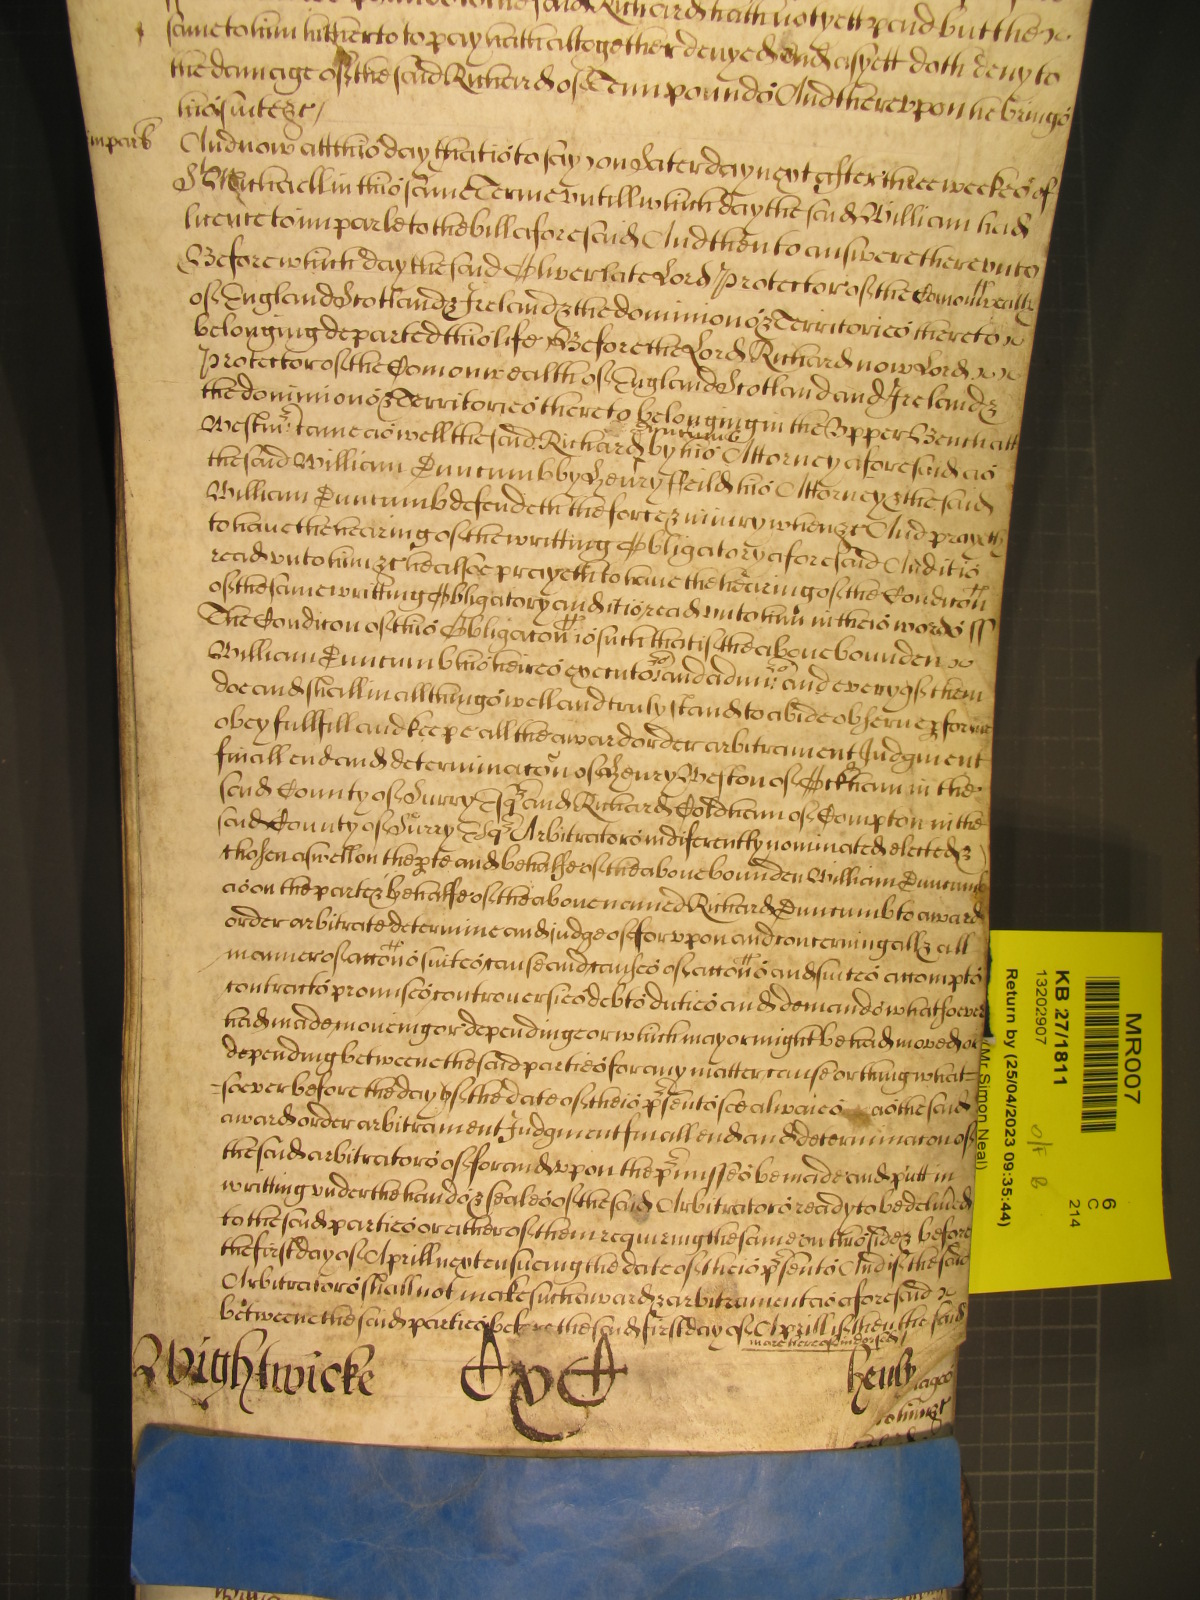 pounds to the said Richard hath not yett paid but the
same to him hitherto to pay hath altogether denyed and as yett doth deny to
the damage of the said Richard of Tenn pounds And thereupon he brings
his suite &c /
impark
And now att this day that is to say on Saterday next after three weekes of
St Michaell in this same Terme untill which day the said William had
licence to imparle to the bill aforesaid And then to answere thereunto
Before which day the said Oliver late Lord Protector of the Comonwealth
of England Scotland & Ireland & the dominions & Territories thereto
belonging departed this life Before the Lord Richard now Lord
Protector of the Comonwealth of England Scotland and Ireland &
the dominions & Territories thereto belonging in the Upper Bench att
Westm came as well the said Richard Duncumb by his Attorney aforesaid as
the said William Duncumb by Henry Feild his Attorney & the said
William Duncumb defendeth the force & iniury when &c And prayeth
to have the hearing of the writting Obligatory aforesaid And it is
read unto him &c he alsoe prayeth to have the hearing of the Condicon
of the same writting Obligatory and it is read unto him in theis words ss
The Condicon of this Obligacon is such that if the above bounden
William Duncumb his heires executors and admi[n]rs and every of them
doe and shall in all things well and truly stand to abide observe performe
obey fullfill and keepe all the award order arbitrament Judgment
finall end and determinacon of Henry Weston of Ockham in the
said County of Surry Esqr and Richard Coldham of Compton in the
said County of Surry Esqr Arbitrators indiferently nominated elected &
chosen aswell on the pte and behalfe of the above bounden William Duncumb
as on the parte & behalfe of the above named Richard Duncumb to award
order arbitrate determine and judge of for upon and concerning all & all
manner of accons suites cause and causes of accons and suites accompts
contracts promises controversies debts duties and demands whatsoever
had made moveing or depending or which may or might be had moved or
depending betweene the said parties for any matter cause or thing what-
-soever before the day of the date of theis psents soe alwaies as the said
award order arbitrament Judgment finall end and determinacon of
the said arbitrators of for and upon the pmisses be made and putt in
writting under the hands & seales of the said Arbitrators ready to be delivered
to the said parties or either of them requiring the same on this side & before
the first day of Aprill next ensueing the date of theis psents And if the said
Arbitrators shall not make such award & arbitrament as aforesaid
betweene the said parties before the said first day of Aprill if then the said
more hereof indorsed /
Wightwicke
Henly
MR007
KB 27/1811
13202907
Return by (25/04/2023 09:35:44)
(Mr Simon Neal)
6
C
214